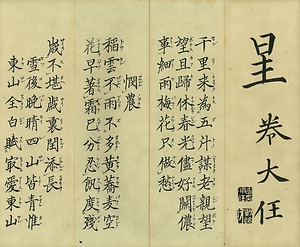 呈 巻大任
千里来為五斗謀老親望
望且歸休春光儘好關儂
事細雨梅花只做愁
憫農
稲雲不雨不多黄蕎麦空
花早著霜已分忍飢度残
歳不堪歳裏閏添長
雪後晩晴四山皆青惟
東山全白賦最愛東山